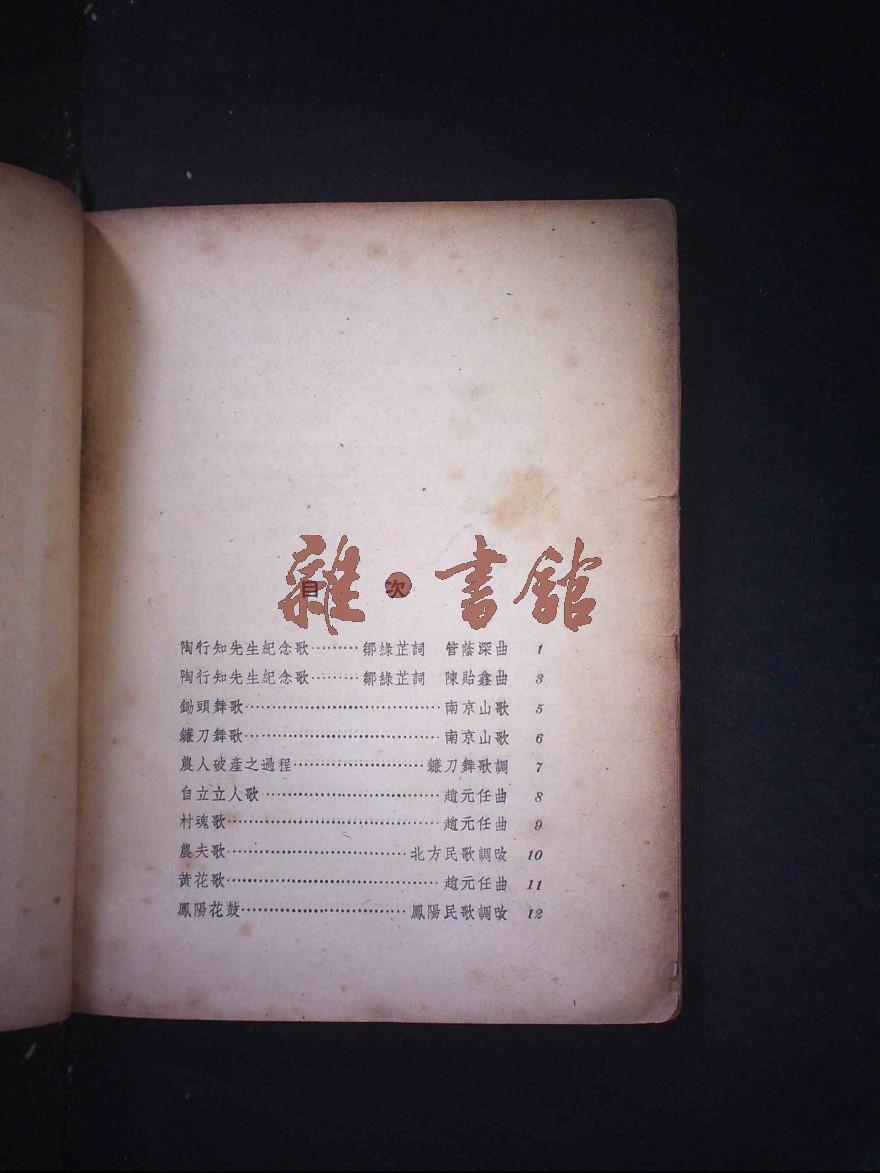 雜·書館
目次
陶行知先生紀念歌………鄒綠芷詞 管蔭深曲 1
陶行知先生紀念歌………鄒綠芷詞 陳貽鑫曲 3
鋤頭舞歌…………………………………南京山歌 5
鐮刀舞歌…………………………………南京山歌 6
農人破產之過程………………………鐮刀舞歌調 7
自立立人歌………………………………趙元任曲 8
村魂歌……………………………………趙元任曲 9
農夫歌………………………………北方民歌調改 10
黃花歌……………………………………趙元任曲 11
鳳陽花鼓……………………………鳳陽民歌調改 12